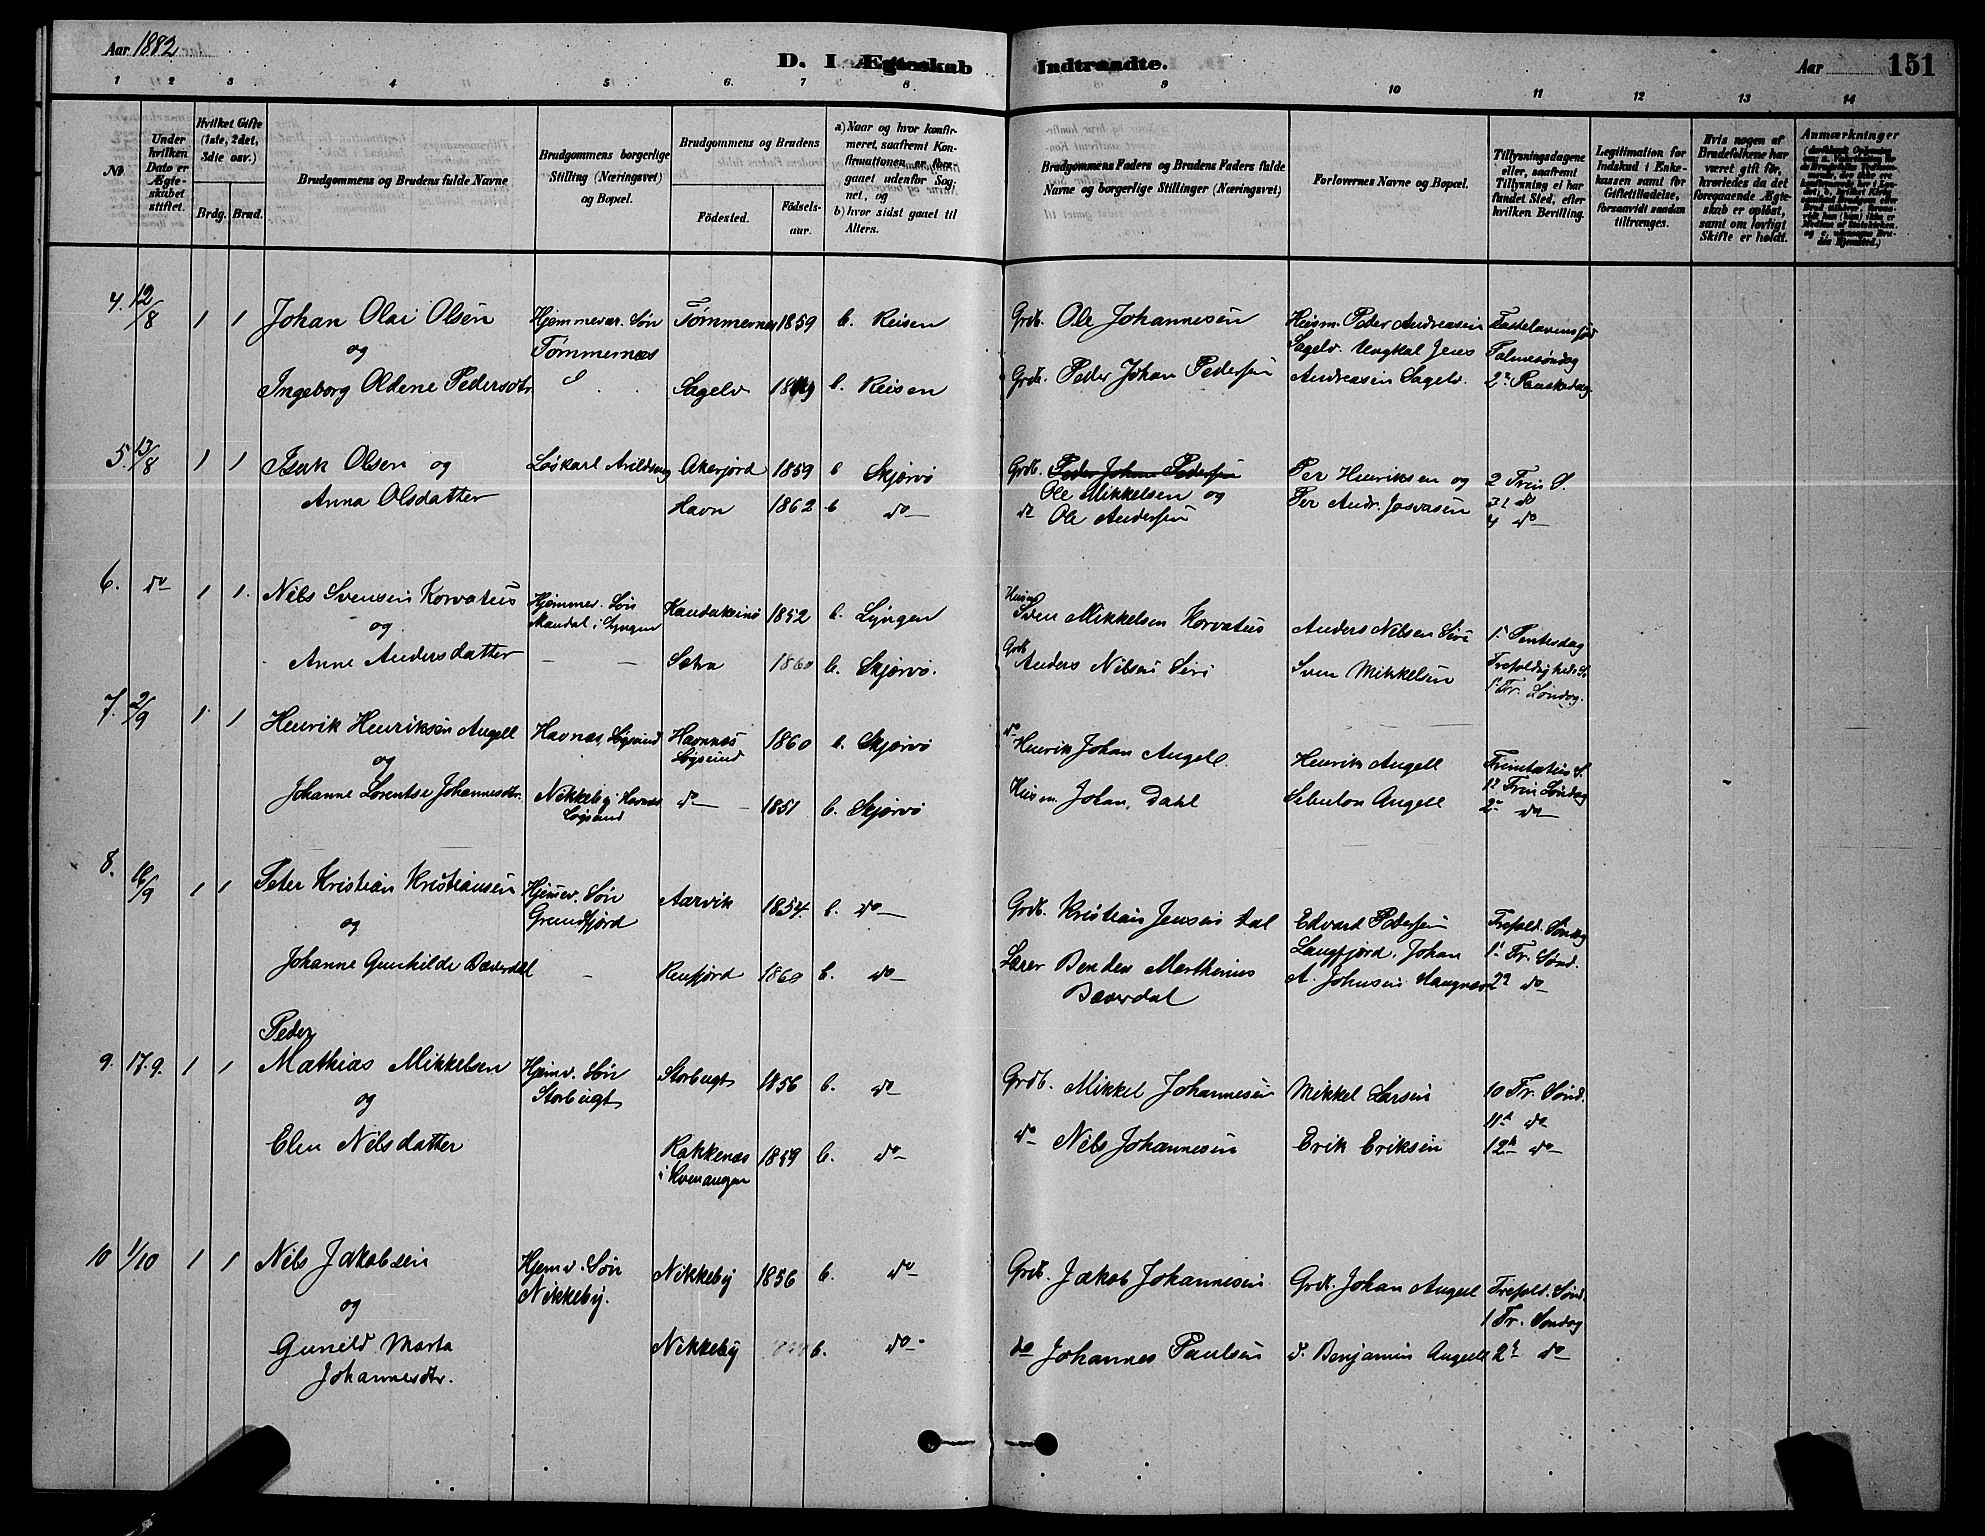 Aar 1882
D. I Ægteskab Indtraadte.
Aar 151
1 2 3 4 5 6 7 8 9 10 11 12 13 14
No.
Under hvilken Dato er Ægteskabet stiftet.
Hvilket Gifte (1ste, 2det, 3die osv.)
Brdg. Brud.
Brudgommens og Brudens fulde Navne
Brudgommens borgerlige Stilling (Næringsvei) og Bopæl.
Brudgommens og Brudens
Fødested. Fødsels-aar.
a) Naar og hvor konfirmeret, saafremt Konfirmationen er foregaaet udenfor Sognet, og
b) hvor sidst gaaet til Alters.
Brudgommens Faders og Brudens Faders fulde Navne og borgerlige Stillinger (Næringsvei)
Forlovernes Navne og Bopæl.
Tillysningsdagene eller, saafremt Tillysning ei har fundet Sted, efter hvilken Bevilling.
Legitimation for Indskud i Enkekassen samt for Giftetilladelse, forsaavidt saadan tiltrænges.
Hvis nogen af Brudefolkene har været gift før, hvorledes da det foregaaende Ægteskab er opløst, samt om lovligt Skifte er holdt.
Anmærkninger
4. 12/8 1 1 Johan Olai Olsen Hjemmevær. Søn Tømmernes 1859 b. Reisen Grdb. Ole Johannesen Huusm. Peder Andreasen Fastelavens
og Tømmernæs Sagelv. Ungkal Jens Palmesøndag
Ingeborg Oldene Pedersdtr Sagelv b. Reisen Grdb. Peder Johan Pedersen Andreasen Sagelv. 2n Paaskedag
5. 13/8 1 1 Isak Olsen og Løskarl Akerjord 1859 b Skjervø Grdb. Peder Johan Pedersen Per Henriksen og 2 Trin S.
Anna Olsdatter Havn 1862 b do Ole Mikkelsen og Per Andr. Josvasen 3 do
Ole Andersen 4 do
6. do 1 1. Nils Svensen Korvatus Hjemmev. Søn 1852 b. Lyngen Huusm Sven Mikkelsen Korvatus Anders Nilsen Siri 1 Pintsedag
og Mandal i Lyngen
Anne Andersdatter — — 1860 b. Skjervø. Grdb Anders Nilsen Siri Sven Mikkelsen Trefoldigheds S
1 Tr. Søndag.
7. 2/9 1 1 Henrik Henriksen Angell Havnæs, Løgsund Havnnæs Løgsund 1860 b. Skjervø do Henrik Johan Angell. Henrik Angell Trinitatis S.
og 1 Trin Søndag
Johanne Lorentse Johannesdtr. Nikkeby Havnæs Løgsund do 1851 b. Skjervø Huusm. Johan Dahl Sebulon Angell 2 do
8. 16/9 1 1 Peter Kristian Kristiansen Hjemev. Søn Aarvik 1854. b. do Grdb. Kristian Jensen Dal Edvard Pedersen Trefold. Søndag
og Grundfjord Langfjord, Johan 1 Tr. Sønd.
Johanne Gunhilde Bæverdal — Reinfjord 1860 b. do Lærer Morthinius A. Johnsen 2 do
Bæverdal
Peder
9. 17.9. 1 1 Mathias Mikkelsen Hjemv. Søn Storbugt 1856 b. do Grdb. Mikkel Johannesen Mikkel Larsen 10 Tr. Sønd.
og Storbugt 11 do
Elen Nilsdatter Rakkenæs i Kvenangen 1859 b. do do Nils Johannesen Erik Eriksen 12 do
10 1/10 1 1 Nils Jakobsen Hjemv. Søn Nikkeby 1856 b. do Grdb. Jakob Johannesen Grdb. Johan Angell Trefold. Sønd.
og Nikkeby. 1 Tr. Søndag
Gunild Marta Nikkeby b. do do Johannes Paulsen d. Benjamin Angell 2 do
Johannesdtr.